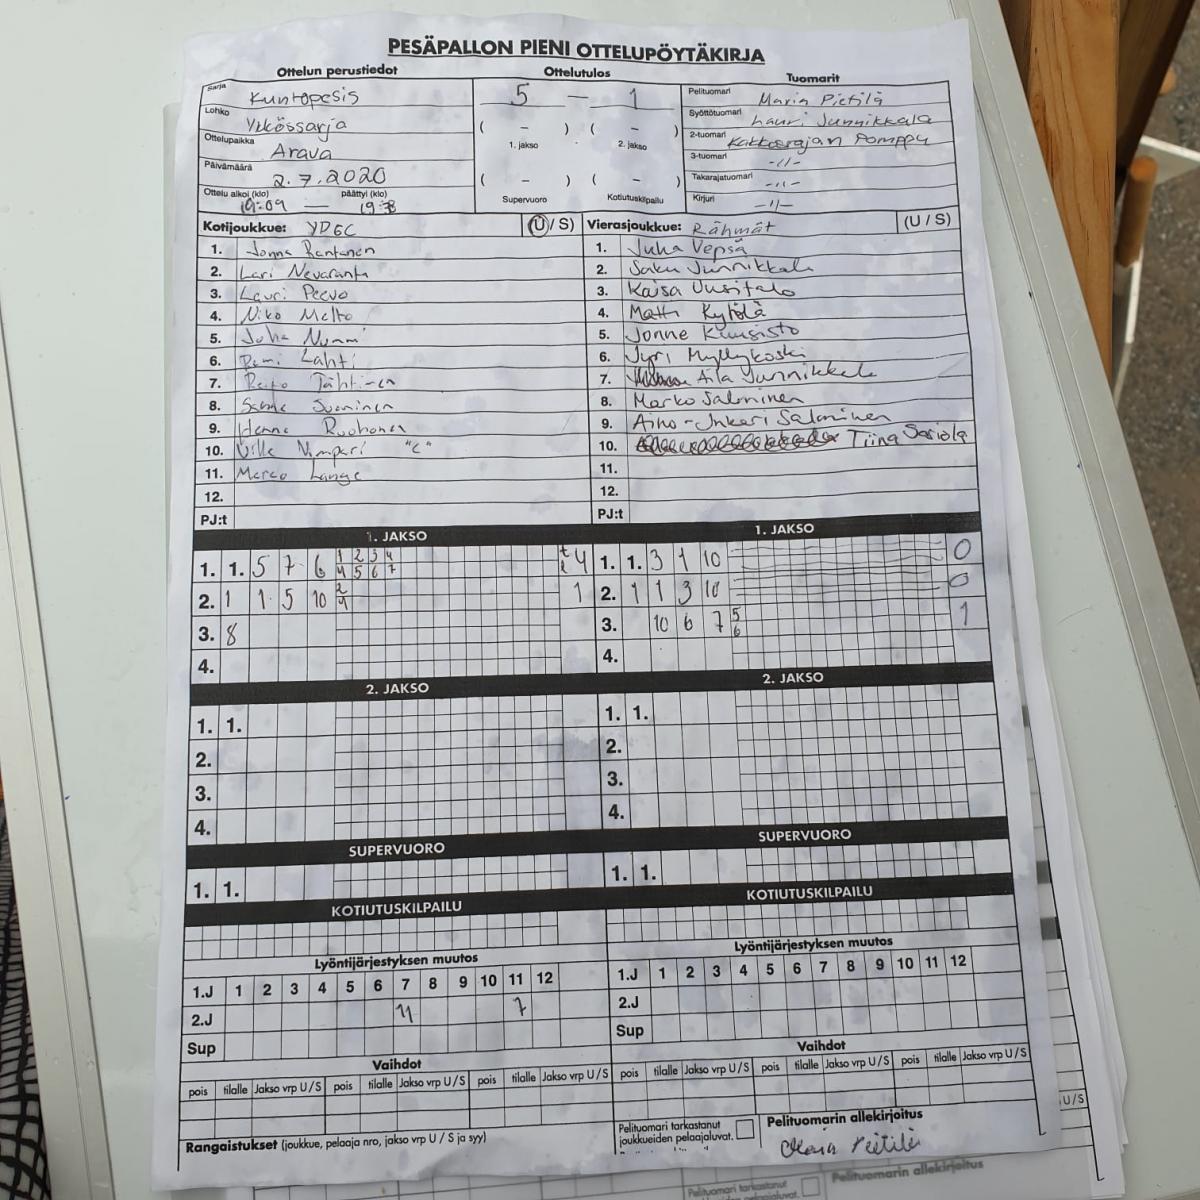 PESÄPALLON PIENI OTTELUPÖYTÄKIRJA
Ottelun perustiedot Ottelutulos Tuomarit
Sarja Kuntopesis 5 — 1 Pelituomari Maria Pietilä
Lohko Ykkössarja Syöttötuomari Lauri Junnikkala
Ottelupaikka Arava ( – ) ( – ) 2-tuomari Kakkosrajan Pomppu
1. jakso 2. jakso 3-tuomari -//-
Päivämäärä 2.7.2020 ( – ) ( – ) Takarajatuomari -//-
Ottelu alkoi (klo) 19:09 — päättyi (klo) Supervuoro Kotiutuskilpailu Kirjuri -//-
Kotijoukkue: YDGC (U/S) Vierasjoukkue: Rähmät (U / S)
1. Jonna Rantanen 1. Juha Vepsä
2. Lari Nevaranta 2. Saku Junnikkala
3. Lauri Peevo 3. Kaisa Uusitalo
4. Niko Melto 4. Matti Kytölä
5. Juha Nummi 5. Jonne Kuusisto
6. Lahti 6. Jyri Myllykoski
7. Tähtinen 7. Aila Junnikkala
8. Suominen 8. Marko Salminen
9. Henna Ruohonen 9. Aino-Inkeri Salminen
10. Ville "C" 10. Tiina Sariola
11. Marco Lange 11.
12. 12.
PJ:t PJ:t
1. JAKSO 1. JAKSO
1. 1. 5 7 6 1 2 3 4 4 1. 1. 3 1 10 0
4 5 6 7
2. 1 1 5 10 2 1 2. 1 1 3 10 0
4
3. 8 3. 10 6 7 5 1
6
4. 4.
2. JAKSO 2. JAKSO
1. 1. 1. 1.
2. 2.
3. 3.
4. 4.
SUPERVUORO SUPERVUORO
1. 1. 1. 1.
KOTIUTUSKILPAILU KOTIUTUSKILPAILU
Lyöntijärjestyksen muutos Lyöntijärjestyksen muutos
1.J 1 2 3 4 5 6 7 8 9 10 11 12 1.J 1 2 3 4 5 6 7 8 9 10 11 12
2.J 11 7 2.J
Sup Sup
Vaihdot Vaihdot
pois tilalle Jakso vrp U/S pois tilalle Jakso vrp U/S pois tilalle Jakso vrp U/S pois tilalle Jakso vrp U/S pois tilalle Jakso vrp U/S pois tilalle Jakso vrp U/S
Rangaistukset (joukkue, pelaaja nro, jakso vrp U / S ja syy) Pelituomari tarkastanut Pelituomarin allekirjoitus
joukkueiden pelaajaluvat. Maria Pietilä
U/S
Pelituomari tarkastanut Pelituomarin allekirjoitus
pelaajaluvat.